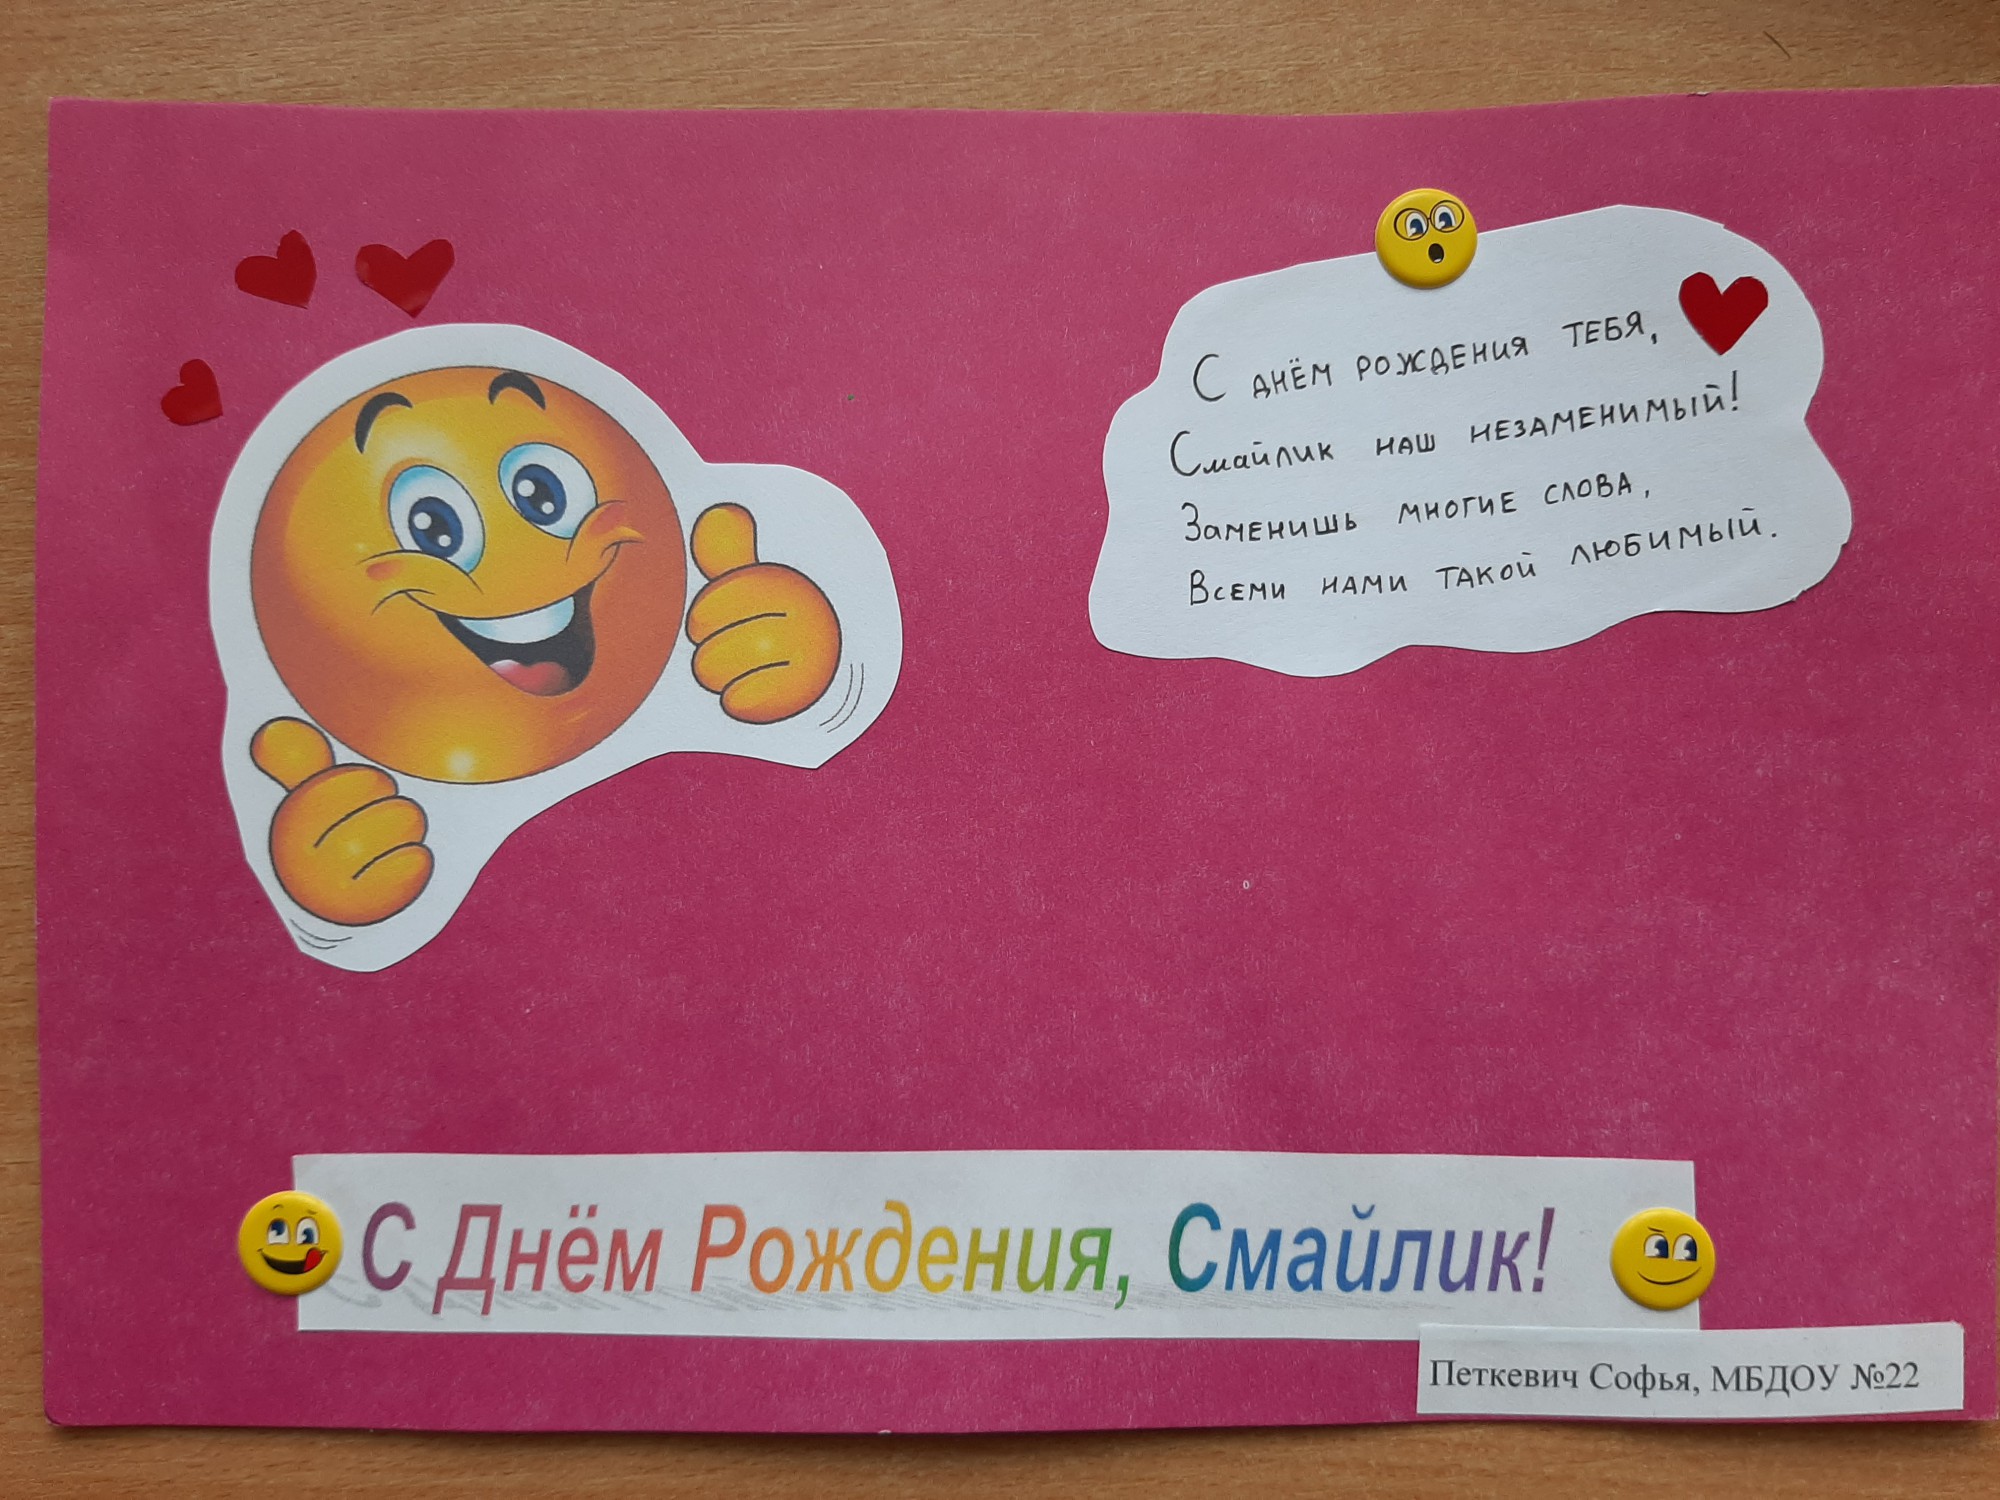 С днём рождения тебя,
Смайлик наш незаменимый!
Заменишь многие слова,
Всеми нами такой любимый.
С Днём Рождения, Смайлик!
Петкевич Софья, МБДОУ №22